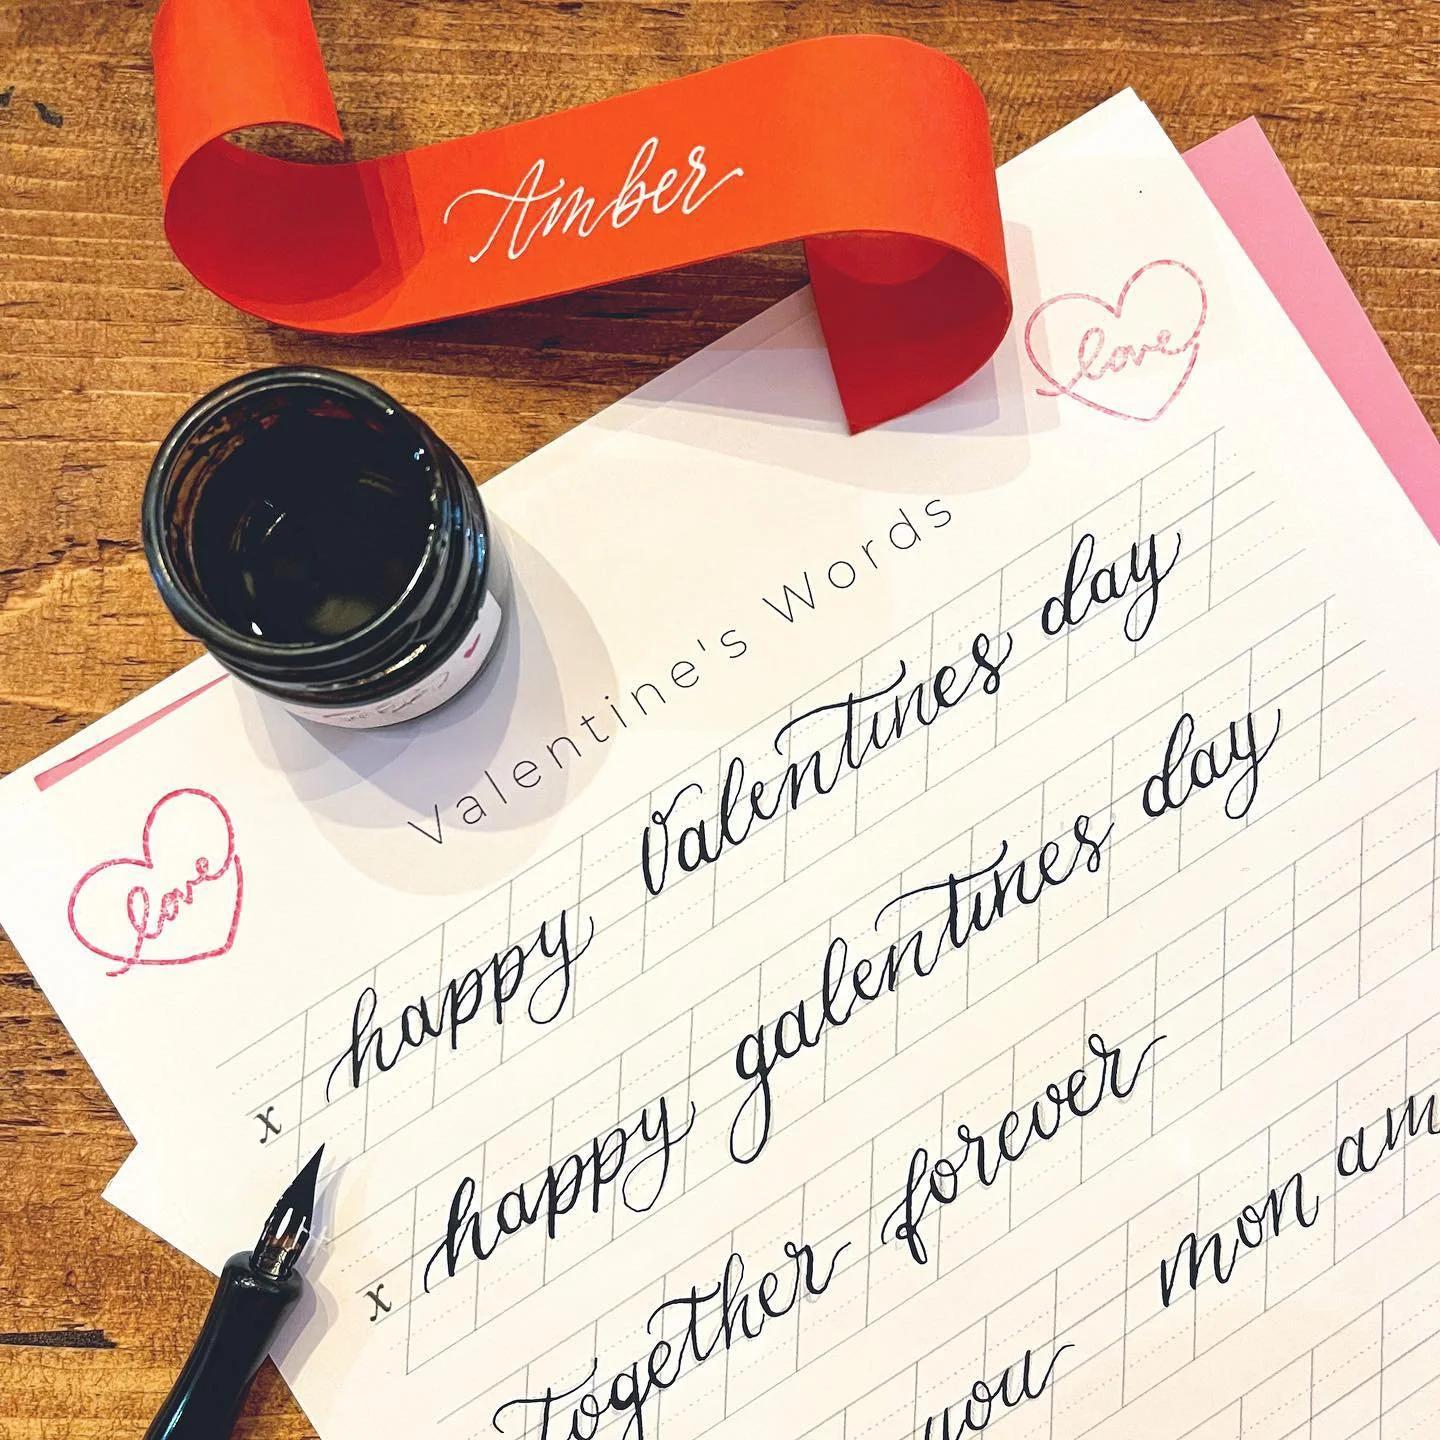 Amber
love
Valentine's Words
love
happy Valentines day
x
happy galentines day
x
Together forever
mon am
you